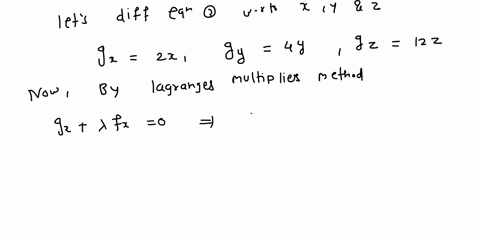 let's diff eqn ② w.r.to x, y & z
gx = 2x, gy = 4y, gz = 12z
Now, By lagranges multiplies method
gx + λ fx = 0 ⇒